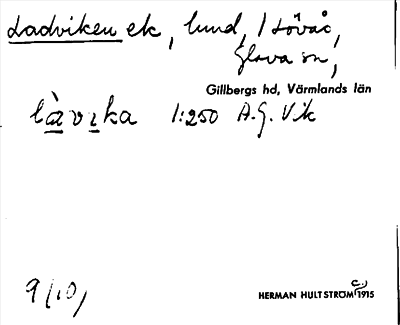 Ladviken ek, lund, / Lövåc,
Glava sn,
Gillbergs hd, Värmlands län
làvıka 1:250 A.G. Vik
9/10,
HERMAN HULTSTRÖM 1915